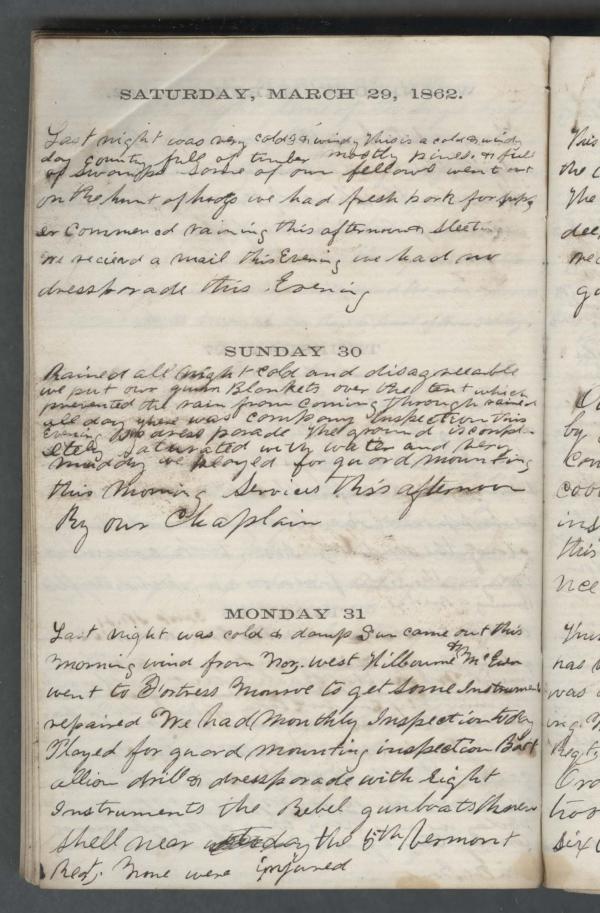 SATURDAY, MARCH 29, 1862.
Last night was very cold & windy This is a cold & windy
day country full of timber mostly pines & full
of swamps Some of our fellows went out
on the hunt of hogs we had fresh pork for supp
er Commenced raining this afternoon & sleeting
we recievd a mail this Evening we had no
dressparade this Evening
SUNDAY 30
Rained all night cold and disagreeable
we put our gum Blankets over the tent which
prevented the rain from coming through rained
all day there was company Inspection this
Evening No dress parade The ground is compl
etely saturated with water and very
muddy we played for guard mounting
this Morning Services this afternoon
By our Chaplain
MONDAY 31
Last night was cold & damp Sun came out this
Morning wind from Nor. west Kilbourne & McEwen
went to Fortress Monroe to get some Instruments
repaired We had Monthly Inspection today
Played for guard mounting inspection Batt
allion drill & dressparade with Eight
Instruments the Rebel gunboats threw
shell near day the 5th Vermont
Regt. None were injured
This
the
The
dee
we
by
Com
coo
ins
this
nee
has
was
Regt
Ord
troo
six